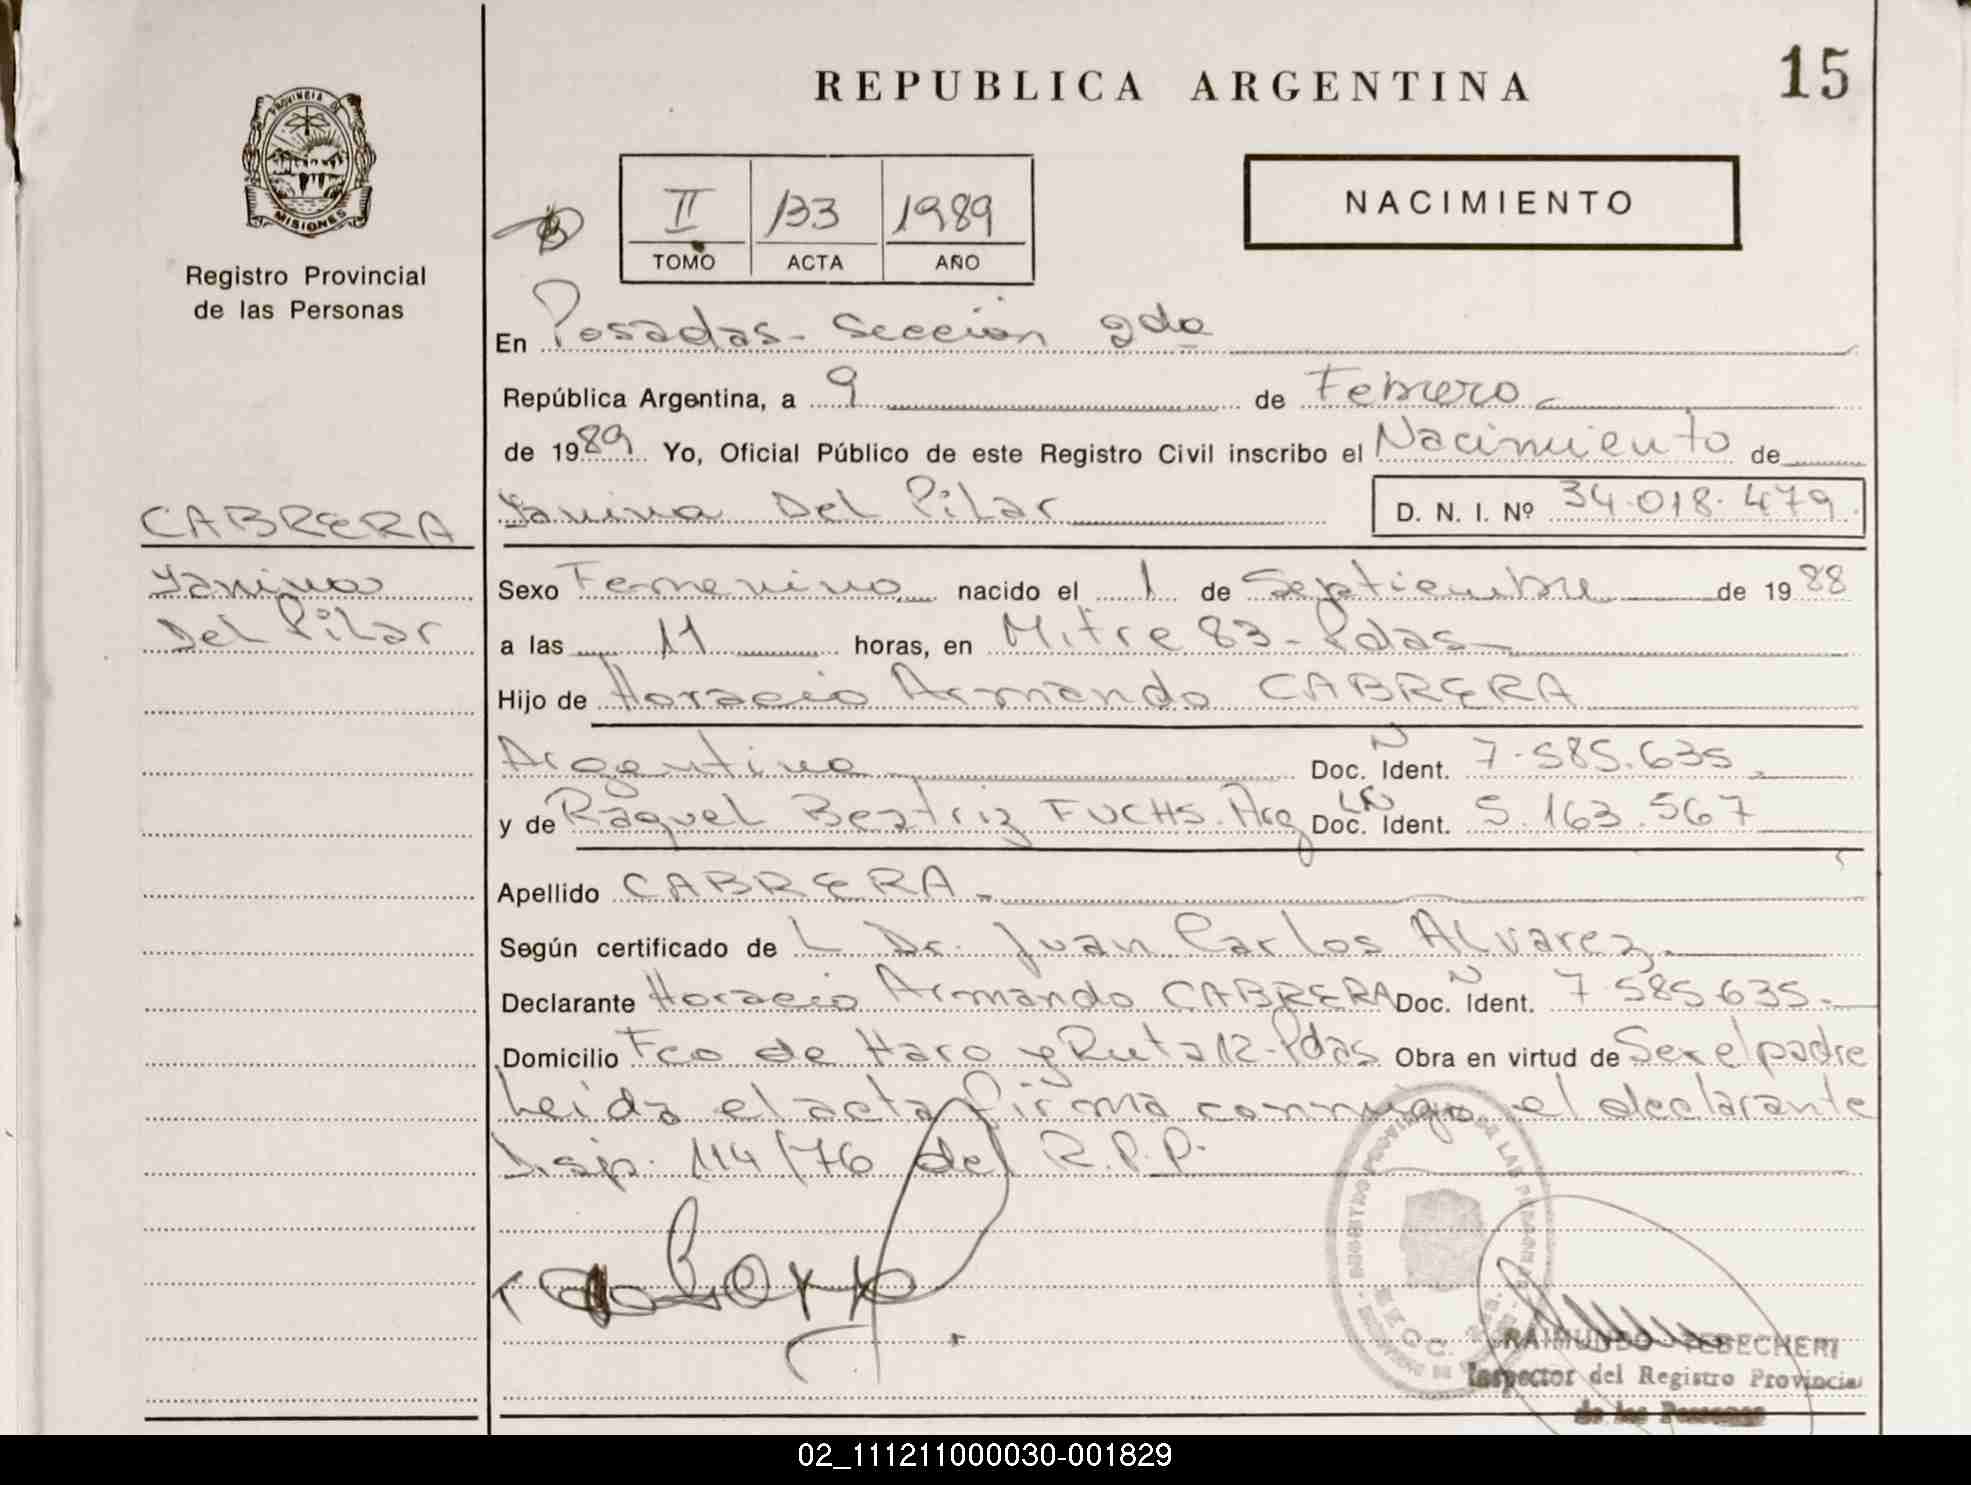 PROVINCIA DE
MISIONES
Registro Provincial
de las Personas
REPUBLICA ARGENTINA
15
II 133 1989
TOMO ACTA AÑO
NACIMIENTO
En Posadas - Seccion 2da
República Argentina, a 9 de Febrero
de 1989 Yo, Oficial Público de este Registro Civil inscribo el Nacimiento de
Yanina Del Pilar D. N. I. Nº 34.018.479
CABRERA
Yanina
Del Pilar
Sexo Femenino nacido el 1 de Septiembre de 1988
a las 11 horas, en Mitre 83 - Pdas
Hijo de Horacio Armando CABRERA
Argentino Doc. Ident. N 7.585.635
y de Raquel Beatriz FUCHS. Arg Doc. Ident. LN 5.163.567
Apellido CABRERA
Según certificado de L Dr. Juan Carlos Alvarez
Declarante Horacio Armando CABRERA Doc. Ident. N 7.585.635
Domicilio Fco de Haro y Ruta 12 - Pdas Obra en virtud de Ser el padre
Leida el acta firma conmigo el declarante
Disp. 114/76 del R.P.P.
RAIMUNDO
Inspector del Registro Provincial
de las Personas
02_111211000030-001829